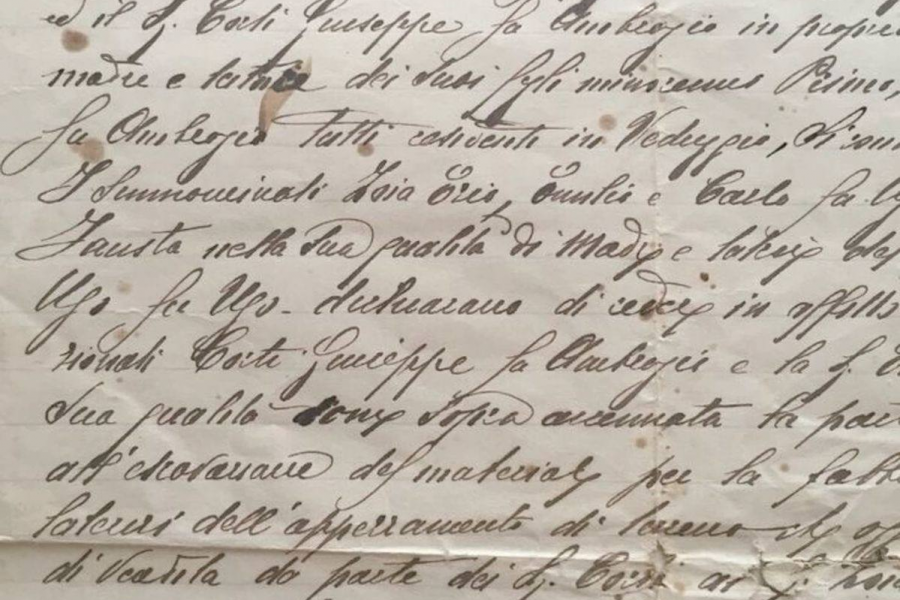 ed il S. Corti Giuseppe fu Ambrogio in proprio
madre e tutrice dei suoi figli minorenni Primo,
fu Ambrogio tutti residenti in Vedeggio, si con
I sunnominati Ezio, Emilio e Carlo fu U
Fausta nella sua qualità di Madre e tutrice de
Ugo fu Ugo - dichiarano di cedere in affitto
zionati Corti Giuseppe fu Ambrogio e la S.
sua qualità come sopra accennata la part
all'escavazione del materiale per la fabb
laterizi dell' di terreno
di vendita da parte dei S. Corti ai S.